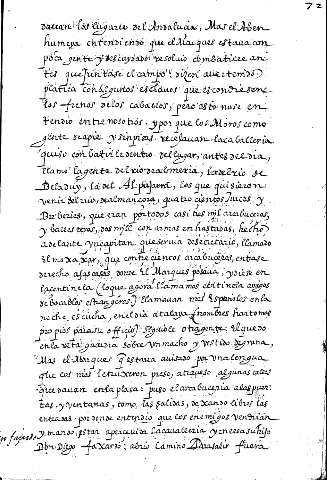 72
dauan los lugares del Andaluzia, Mas el Aben
humeya entendiendo que el Marques estaua con
poca gente y descuidado: resoluio combatirle an
tes que juntase el campo: dizen que tenido
platica con algunos esclauos que escondiesen
los frenos de los cauallos, pero esto no se en
tendio entre nosotros. y por que los Moros como
gente de a pie y sin picas recelauan la caualleria
quiso combatille dentro del lugar, antes del dia,
llamo la gente del rio de almeria, la del rio de
la del Alpujarra, los que quisieron
venir del rio de almanzora, quatro cientos turcos, y
Berberies, que eran por todos casi tres mil arcabuzeros,
y ballesteros, dos mil con armas en hastadas, hecho
adelante un capitan que seruia de secretario, llamado
El moxaxar, que con trecientos arcabuzeros, entrase
derecho a las casas donde el Marques posaua, y diese en
la centinela (lo que agora llamamos centinela amigos
de bocablos estrangeros) llamauan nros Españoles en la
noche, escucha, en el dia atalaya (nombres harto mas
pro pios para su officio) seguiole otra gente: el quedo
en la retaguardia sobre un macho y vestido de grana,
Mas el Marques estaua auisado por una lengua
que los truxeron preso, atrabeso algunas calles
que dauan en la plaça: puso el arcabuzeria a las puer
tas, y ventanas, tomo las salidas, dexando libres las
entradas por donde entendio que los enemigos vendrian
y mando estar apercebida la caualleria y con ella su hijo
Don Diego faxardo: abrio camino para salir fuera